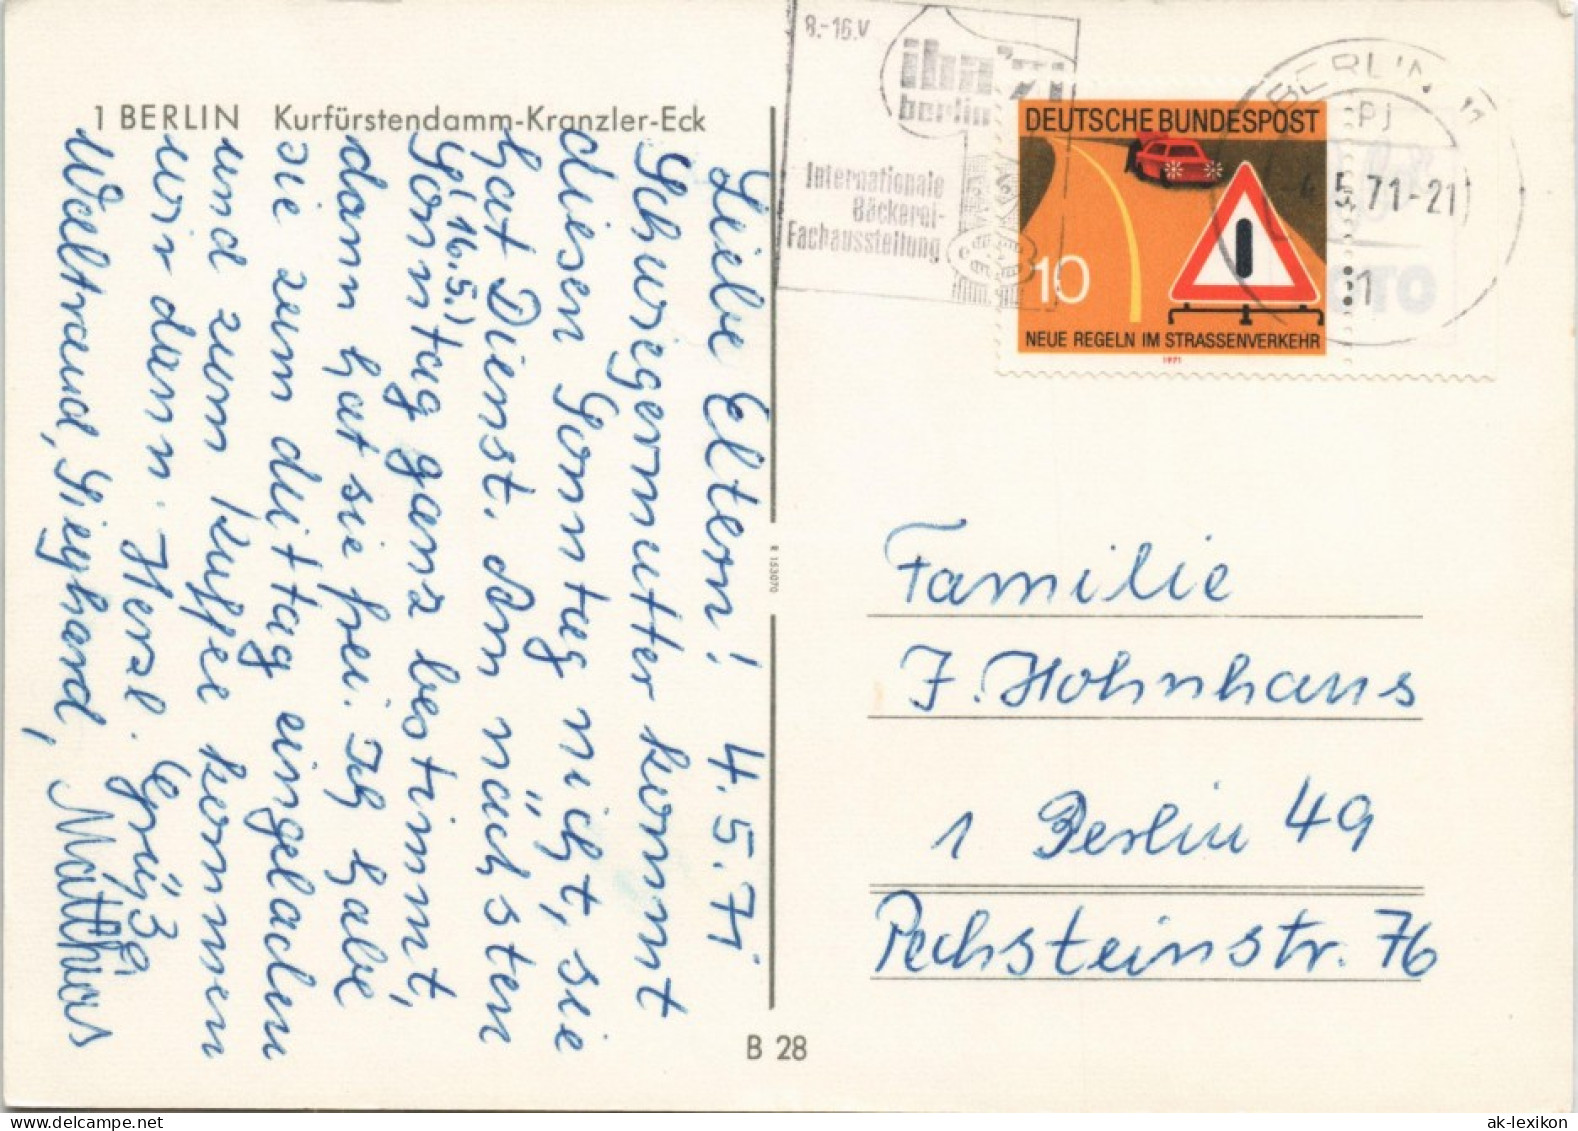 1 BERLIN Kurfürstendamm-Kranzler-Eck
Liebe Eltern! 4.5.71
Schwiegermutter kommt
diesen Sonntag nicht, sie
hat Dienst. Am nächsten
So (16.5.)
Sonntag ganz bestimmt,
dann hat sie frei. Ich habe
sie zum Mittag eingeladen
und zum Kaffee kommen
wir dann. Herzl. Grüße
Waltraud, Sieghard,
Matthias
R 153070
B 28
8.-16.V
iba'71
berlin
Internationale
Bäckerei-
Fachausstellung
BERLIN 11
4.5.71-21
DEUTSCHE BUNDESPOST
10
NEUE REGELN IM STRASSENVERKEHR
1971
Familie
J. Hohnhaus
1 Berlin 49
Pechsteinstr. 76
ak-lexikon